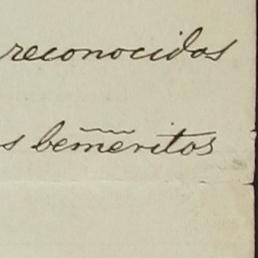 reconocidos
s bemeritos